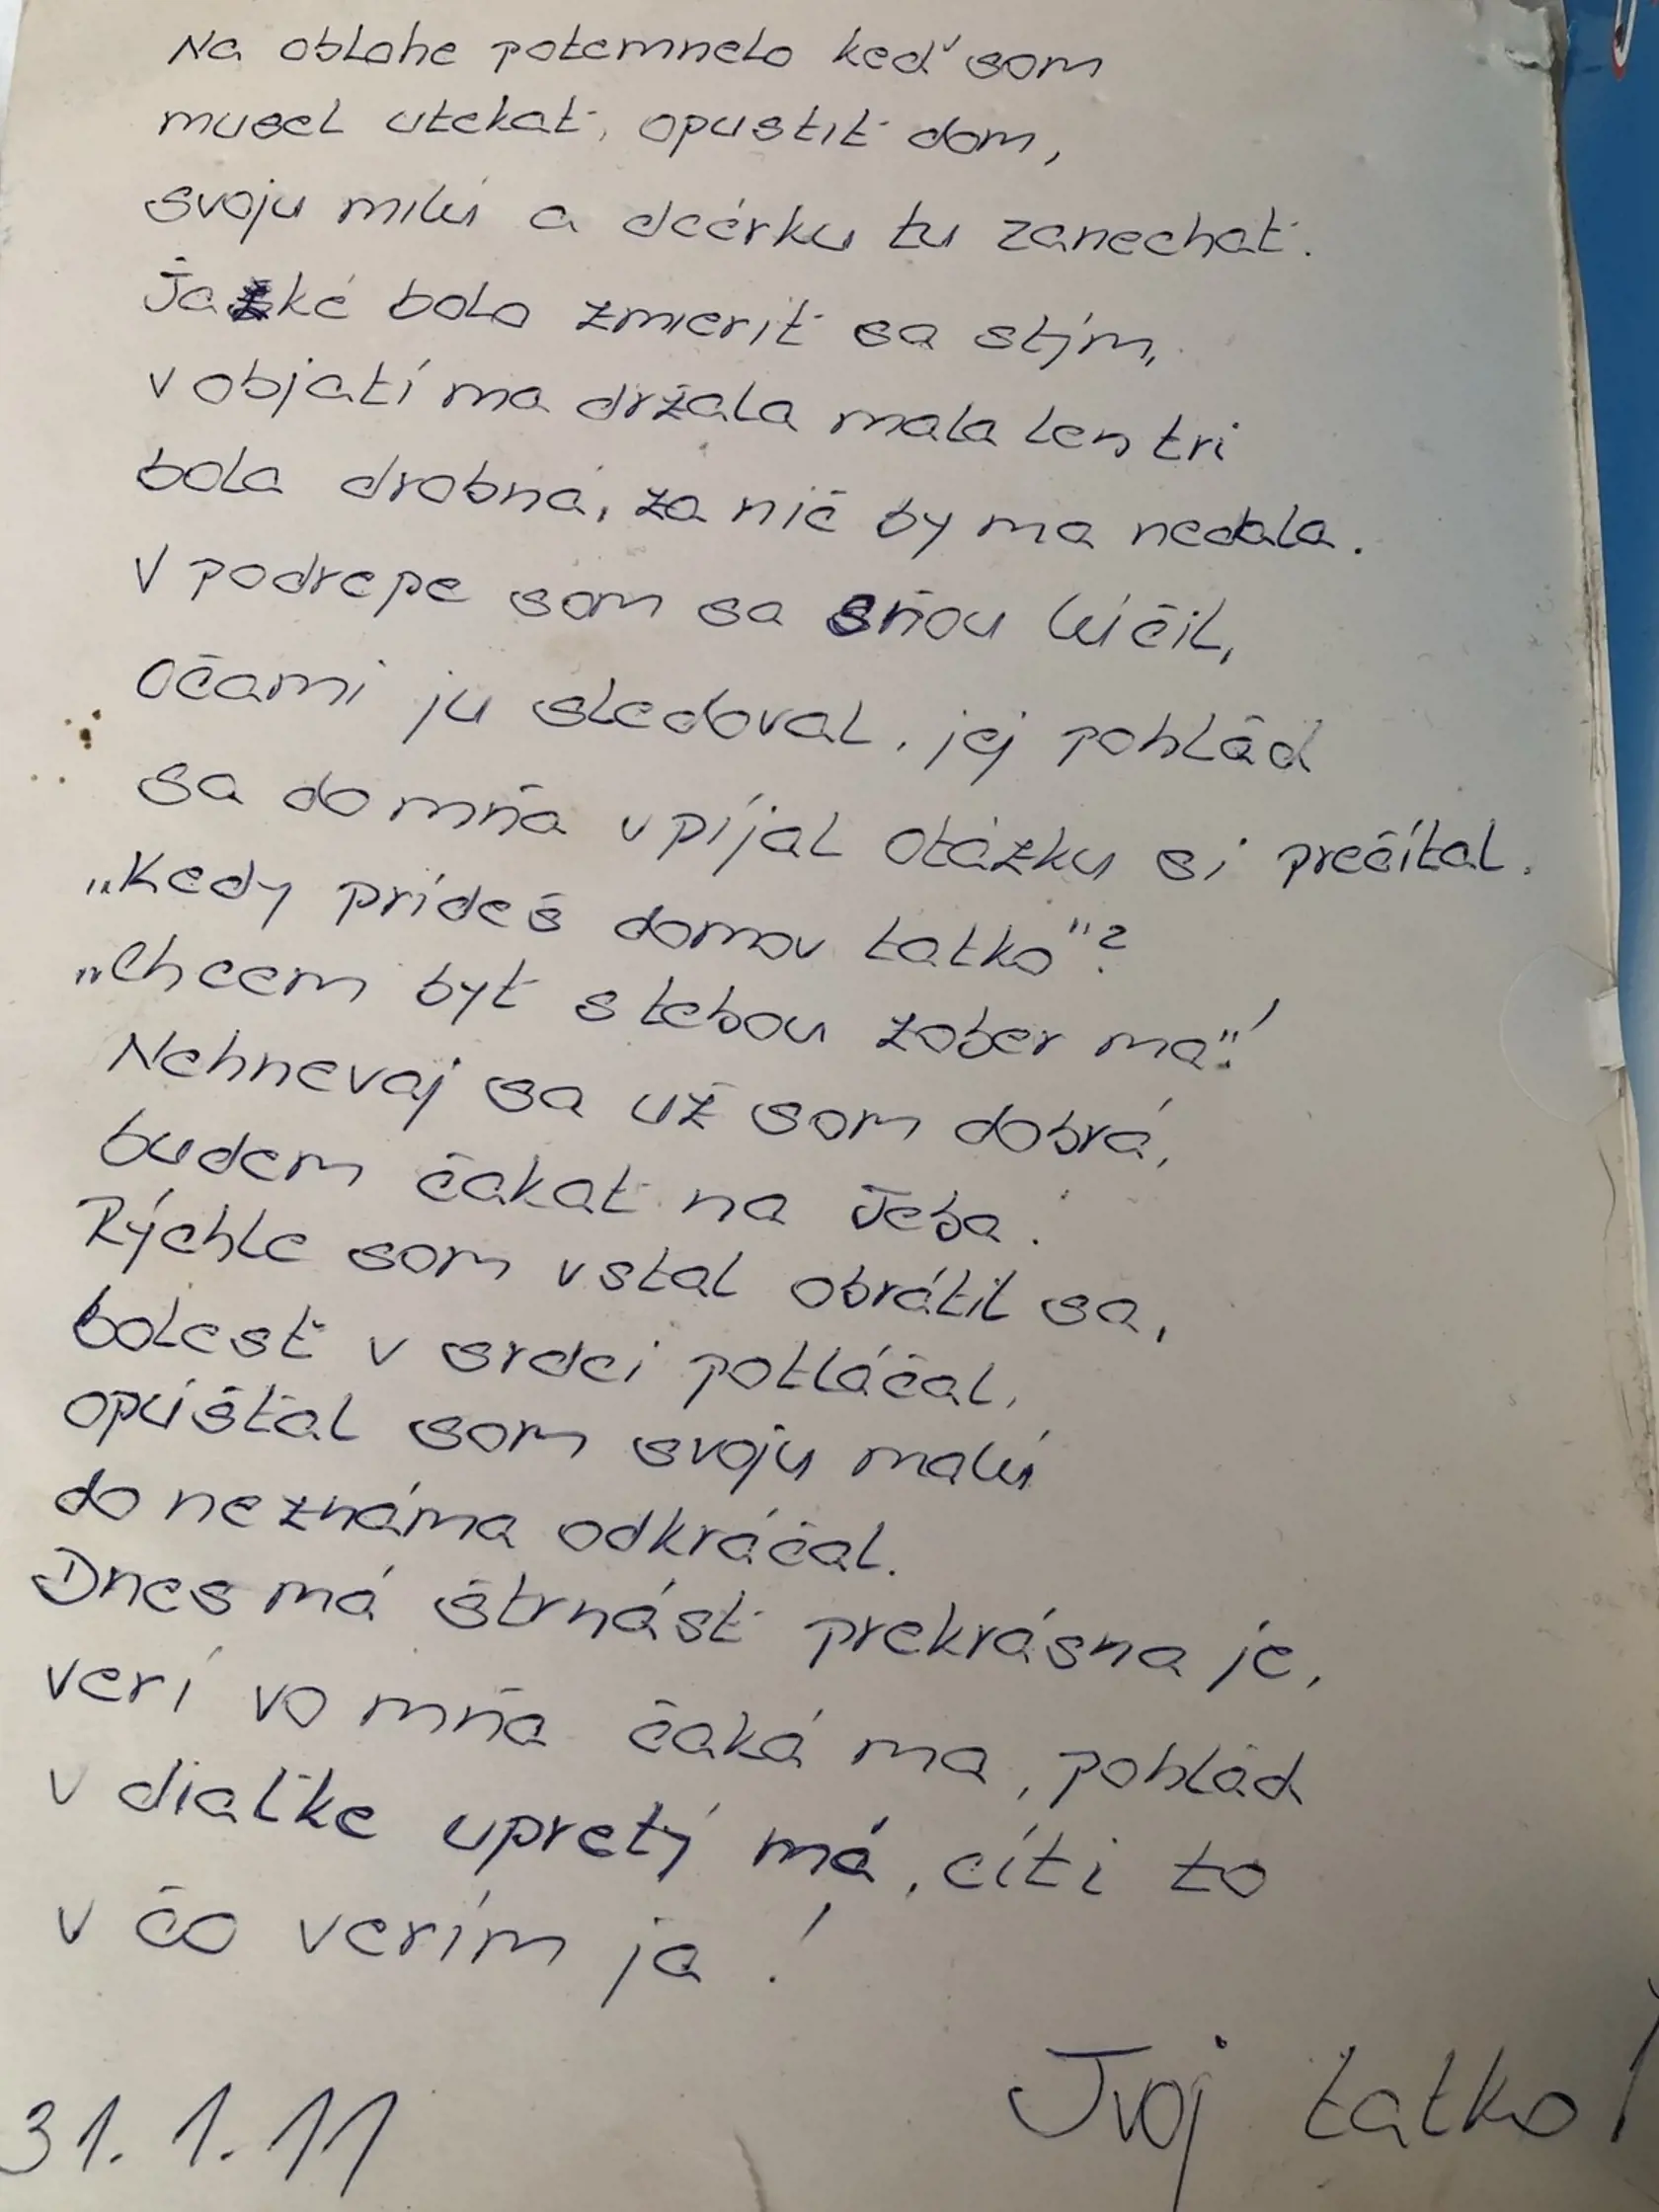 Na oblohe potemnelo keď som
musel utekať, opustiť dom,
svoju milú a dcérku tu zanechať.
Ťažké bolo zmieriť sa stým,
v objatí ma držala mala len tri
bola drobná, za nič by ma nedala.
V podrepe som sa sňou lúčil,
očami ju sledoval, jej pohľad
sa do mňa vpíjal otázku si prečítal.
„Kedy prídeš domov tatko"?
„Chcem byť stebou zober ma"!
Nehnevaj sa už som dobrá,
budem čakať na Teba!
Rýchle som vstal obrátil sa,
bolesť v srdci potláčal,
opúšťal som svoju malú
do neznáma odkráčal.
Dnes má štrnásť prekrásna je,
verí vo mňa čaká ma, pohľad
v diaľke upretý má, cíti to
v čo verím ja!
Tvoj tatko!
31.1.11